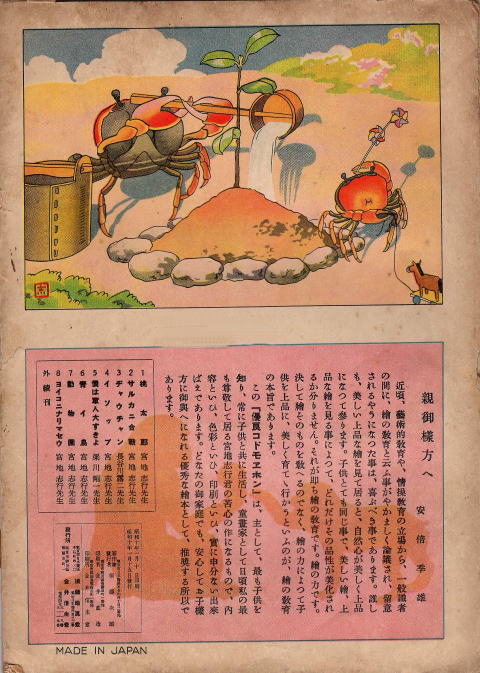 親御樣方へ
安倍季雄
近頃、藝術的敎育や、情操敎育の立場から、一般識者
の間に、繪の敎育と云ふ事がやかましく論議され、留意
されるやうになつた事は、喜ぶべき事であります。誰し
も、美しい上品な繪を見て居ると、自然心が美しく上品
になつて參ります。子供とても同じ事で、美しい繪、上
品な繪を見る事によつて、どれだけその品性が美化され
るか分りません。それが卽ち繪の敎育です。繪の力です。
決して繪そのものを敎へるのでなく、繪の力によつて子
供を上品に、美しく育てゝ行かうといふのが、繪の敎育
の本旨であります。
この「優良コドモヱホン」は、主として、最も子供を
知り、常に子供と共に生活し、童畫家として日頃私の最
も尊敬して居る宮地志行君の苦心の作になるもので、內
容といひ、色彩といひ、印刷といひ、實に申分ない出來
ばえであります。どなたの御家庭でも、安心してお子樣
方に御與へになれる優秀な繪本として、推奬する所以で
あります。
1 桃太郞 宮地志行先生
2 サルカニ合戰 宮地志行先生
3 チュウチン 長谷川露二先生
4 イソップ 宮地志行先生
5 僕は軍人大すきよ 梁川剛一先生
6 靑い鳥 宮地志行先生
7 動物園 宮地志行先生
8 ヨイコニナリマセウ 宮地志行先生
外續刊
MADE IN JAPAN